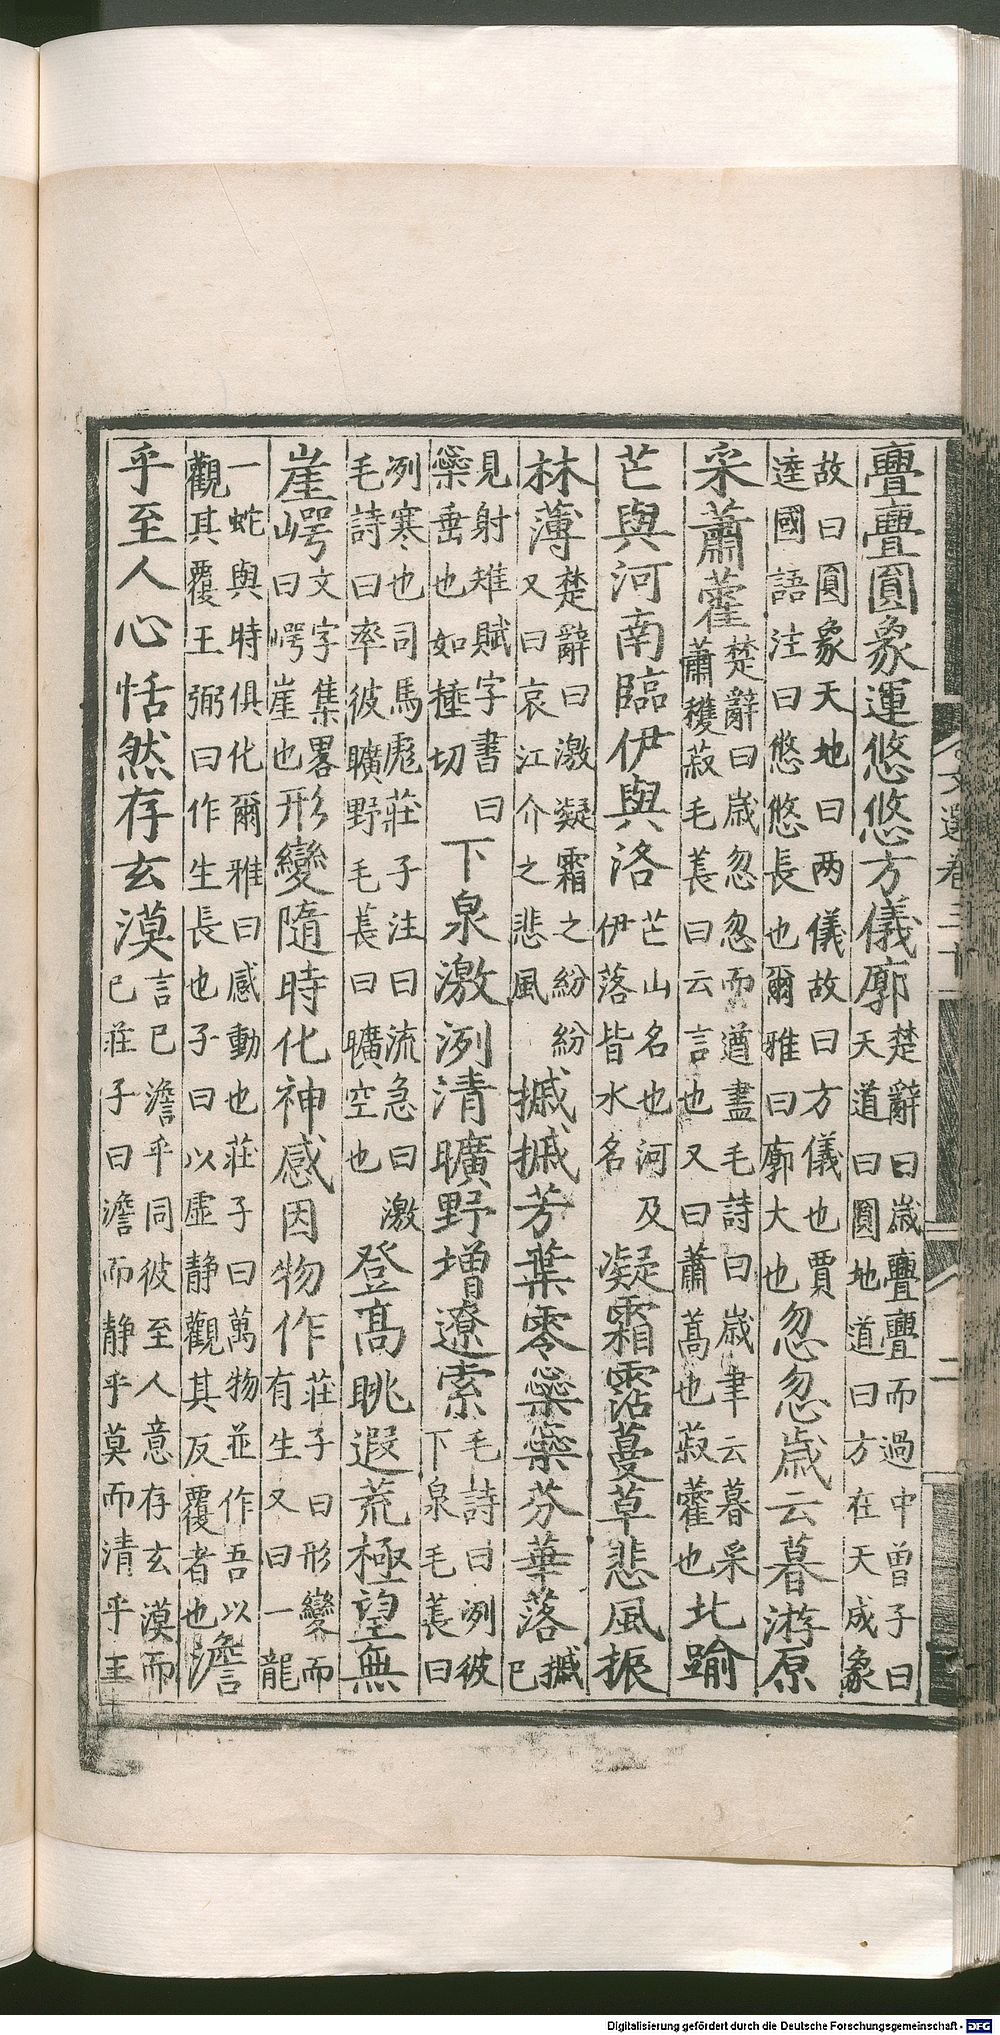 亹亹圓象運悠悠方儀廓楚辭曰歲亹亹而過中曾子曰天道曰圓地道曰方在天成象
故曰圓象天地曰两儀故曰方儀也賈逹國語注曰悠悠長也爾雅曰廓大也忽忽歲云暮游原
采蕭藿楚辭曰歲忽忽而遒盡毛詩曰歲聿云暮采蕭穫菽毛萇曰云言也又曰蕭蒿也菽藿也北踰
芒與河南臨伊與洛芒山名也河及伊落皆水名凝霜霑蔓草悲風振
林薄楚辭曰激凝霜之紛紛又曰哀江介之悲風摵摵芳葉零蘂蘂芬華落摵已
見射雉賦字書曰蘂垂也如捶切下泉激冽清曠野增遼索毛詩曰冽彼下泉毛萇曰
冽寒也司馬彪莊子注曰流急曰激毛詩曰率彼曠野毛萇曰曠空也登髙眺遐荒極望無
崖崿文字集畧曰崿崖也形變隨時化神感因物作莊子曰形變而有生又曰一龍
一蛇與時俱化爾雅曰感動也莊子曰萬物並作吾以觀其覆王弼曰作生長也子曰以虛静觀其反覆者也澹
乎至人心恬然存玄漠言已澹乎同彼至人意存玄漠而已莊子曰澹而静乎莫而清乎王
文選卷三十
二
Digitalisierung gefördert durch die Deutsche Forschungsgemeinschaft - DFG